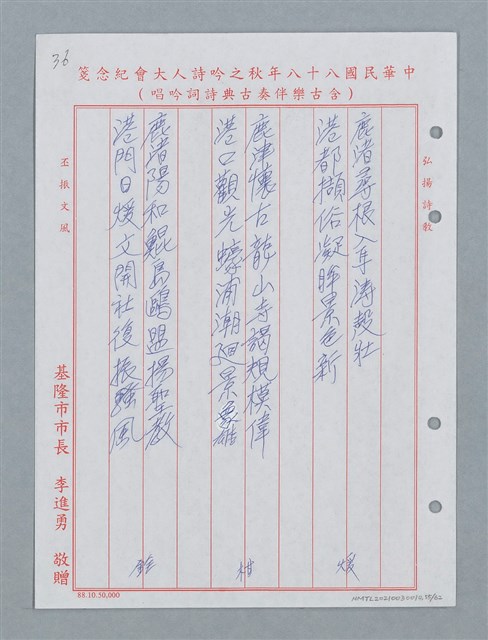 36
中華民國八十八年秋之吟詩人大會紀念箋
(含古樂伴奏古典詩詞吟唱)
弘揚詩教
鹿渚尋根入耳濤聲壯
港都擷俗凝眸景色新
煖
鹿津懷古龍山寺謁規模偉
港口觀光蠔浦潮迴景象雄
柑
鹿渚陽和鯤島鷗盟揚聖教
港門日煖文開社復振騷風
丕振文風
基隆市市長 李進勇 敬贈
88.10.50,000